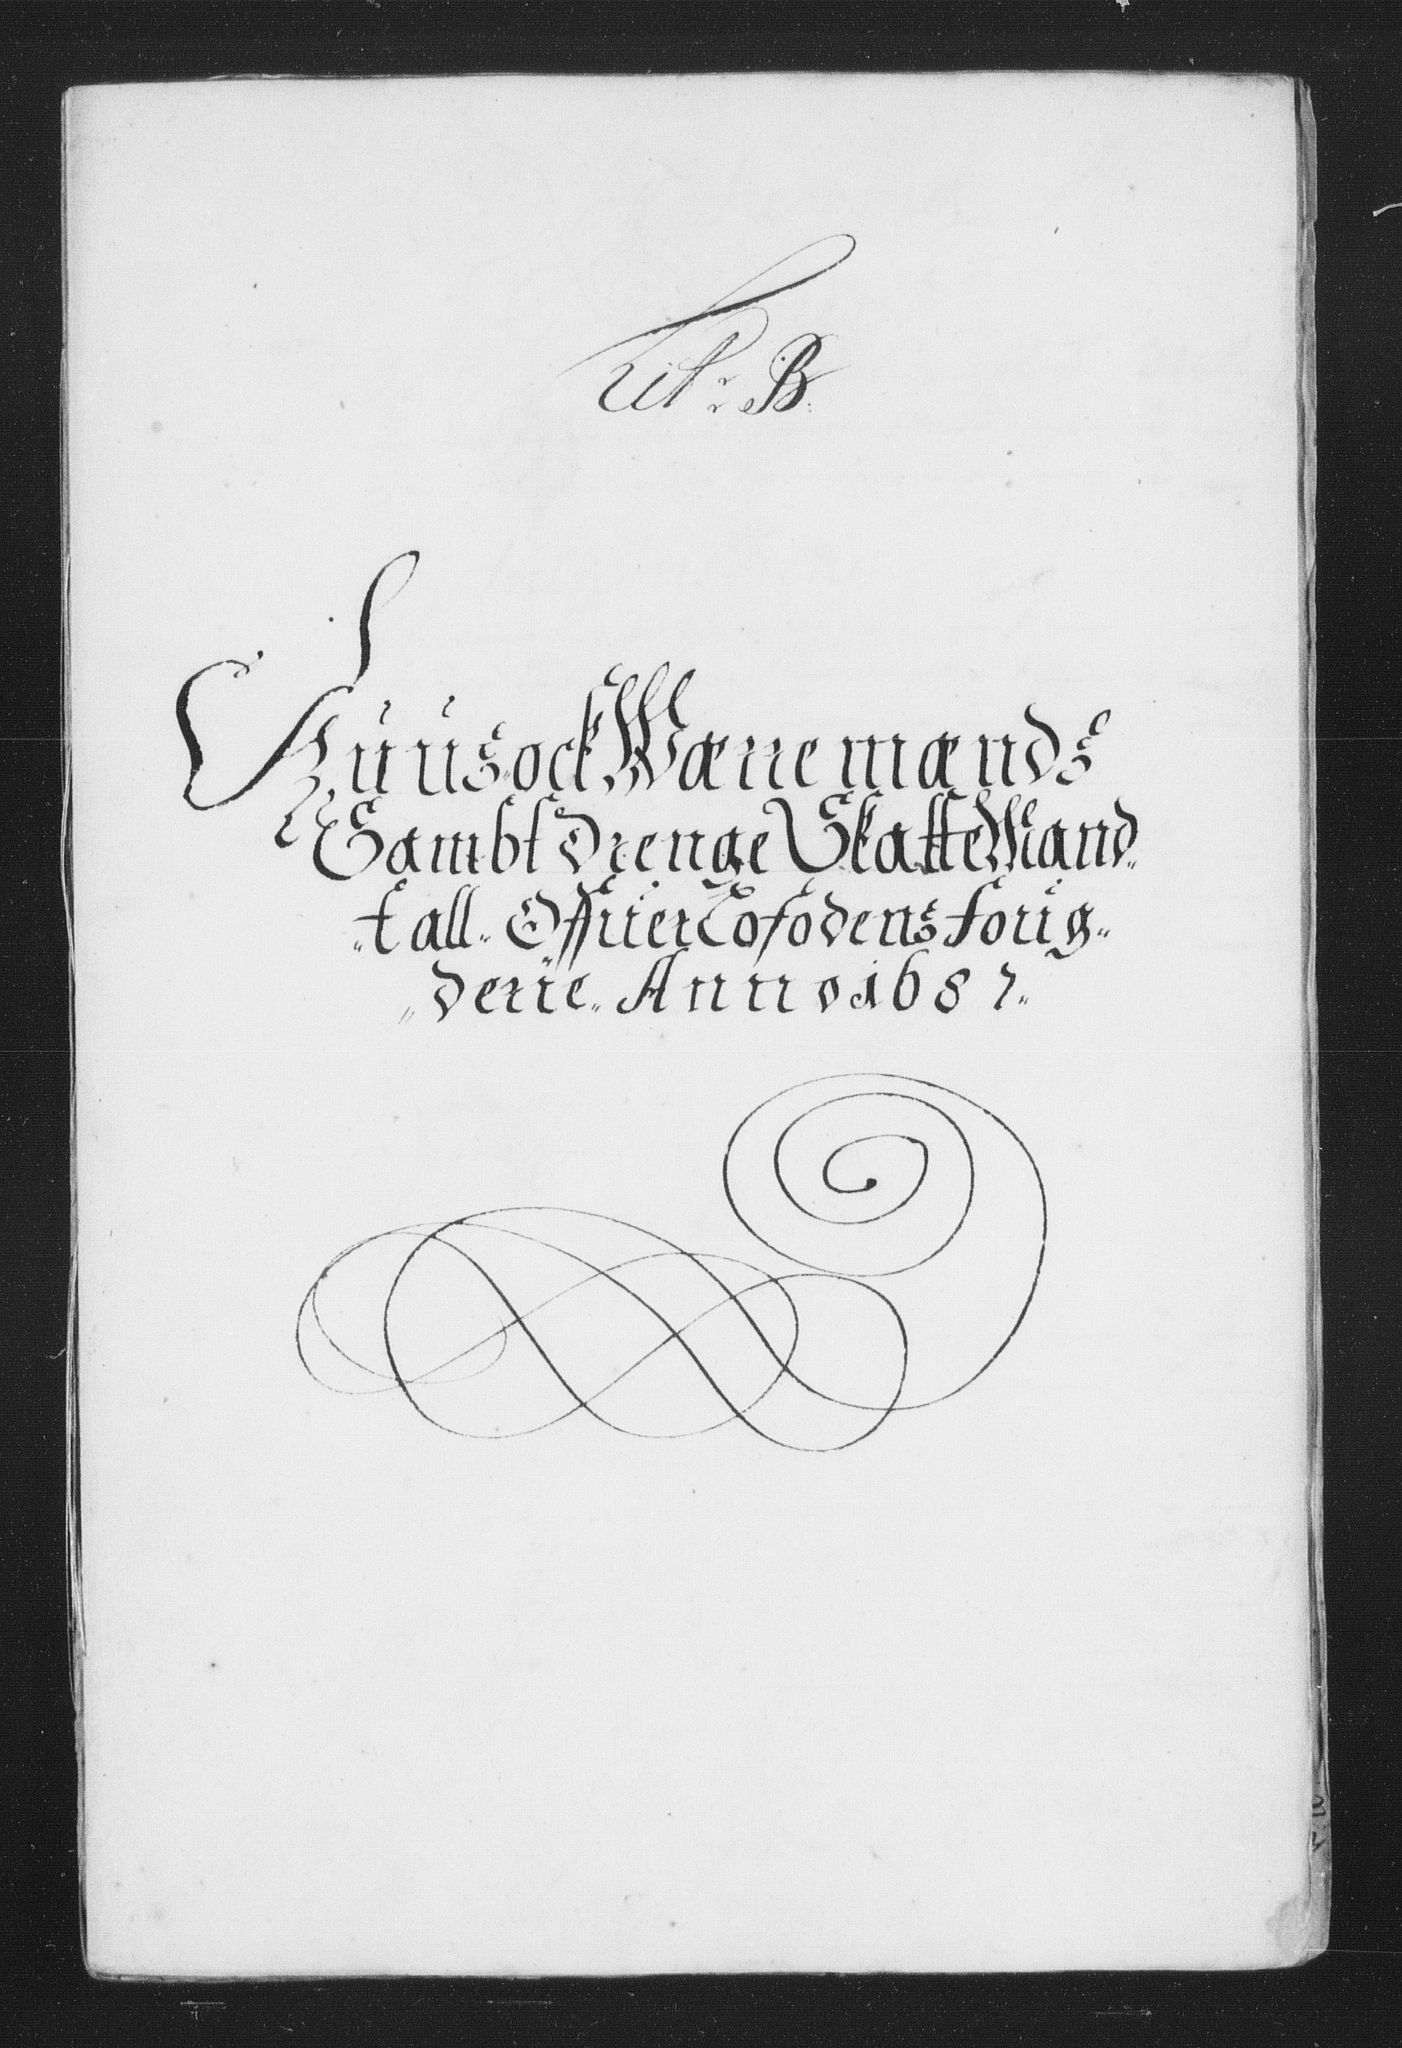 Lit: B:
Huus ock Wærnemænds
Sambt Drenge Skatte Mand„
„tall„ Offuer Lofodens forig„
„derie„ Anno 1687„